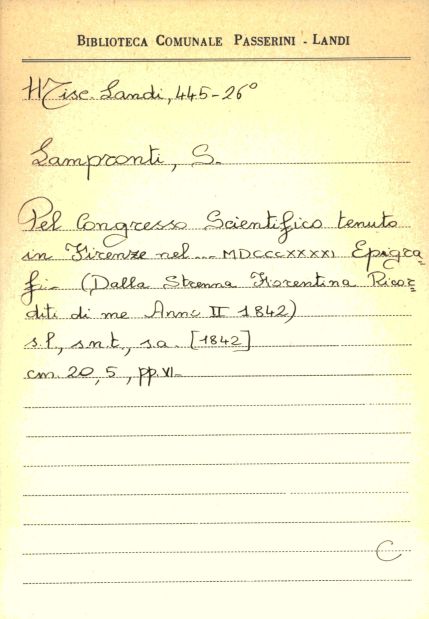 BIBLIOTECA COMUNALE PASSERINI - LANDI
Misc. Landi, 445-26°
Lampronti, S.
Pel Congresso Scientifico tenuto
in Firenze nel... MDCCCXXXXI Epigra=
fi- (Dalla Strenna Fiorentina Ricor=
diti di me Anno II 1842)
s.l., s.n.t., s.a. [1842]
cm. 20,5, pp. VI-
C